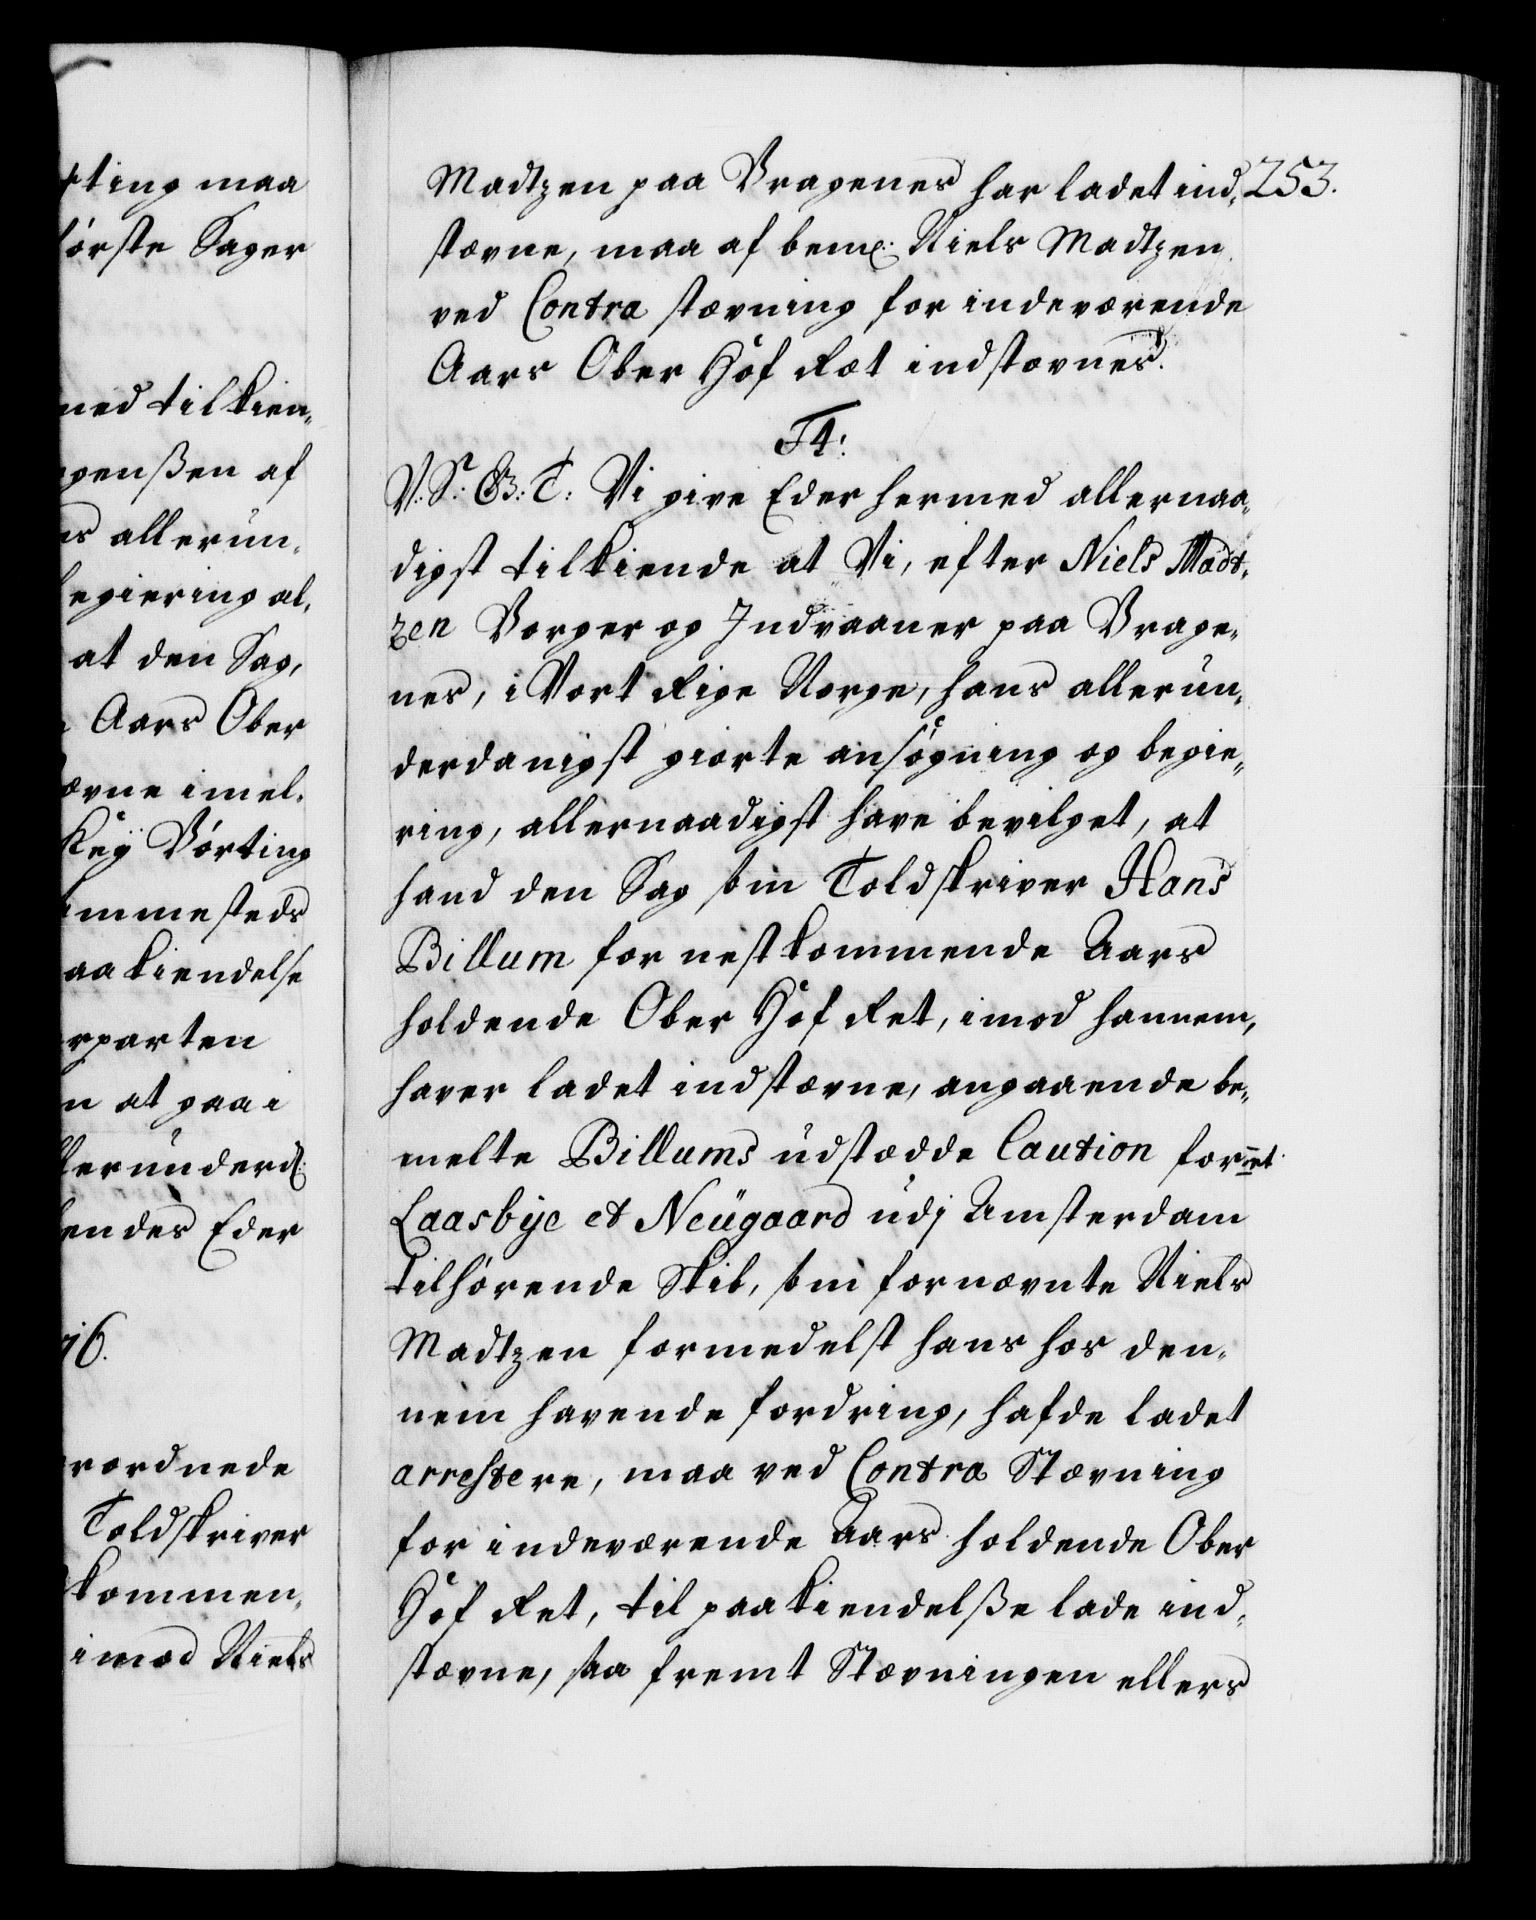 rting maa
første Sager
med tilkien„
penßen af
ns allerun„
begiering al„
at den Sag,
Aars Ober
stævne imel„
Key Børting
emmesteds
paakiendelse
erparten
n at gaa i
allerunderd:
sendes Eder
16.
rordnede
Toldskriver
kommen„
imod Niels
253.
Madtzen paa Bragenes har ladet ind„
stævne, maa af bem.te Niels Madtzen
ved Contra stævning for indeværende
Aars Ober Hof Ræt indstævnes.
F4:
V: S: G: T: Vi give Eder hermed allernaa„
digst tilkiende at Vi, efter Niels Madt„
zen Borger og Indvaaner paa Brage„
nes, i Vort Rige Norge, hans allerun„
derdanigst giorte ansøgning og begie„
ring, allernaadigst have bevilget, at
hand den Sag som Toldskriver Hans
Billum for nestkommende Aars
holdende Ober Hof Ret, imod hannem,
haver ladet indstævne, angaaende be„
melte Billums udstædde Caution for et
Laasbye et Neügaard udj Amsterdam
tilhørende Skib, som fornævnte Niels
Madtzen formedelst hans hos den„
nem havende fordring, hafde ladet
arrestere, maa ved Contra Stævning
for indeværende Aars holdende Ober
Hof Ret, til paakiendelße lade ind„
stævne, saa fremt Stævningen ellers